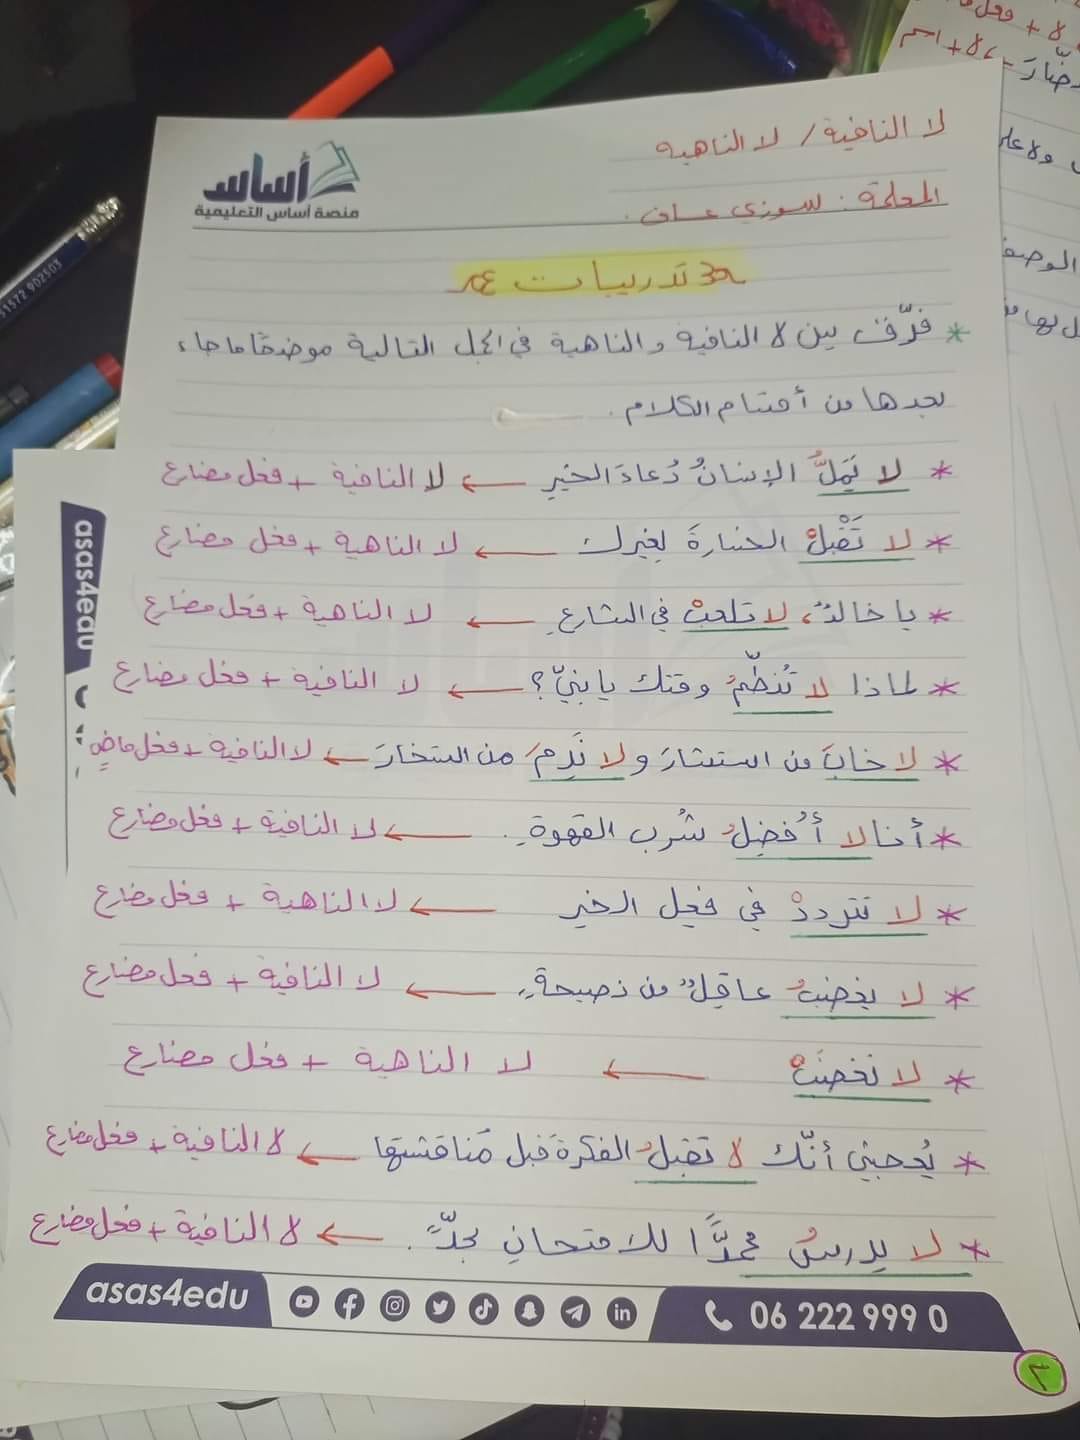 لا النافية / لا الناهية
أساس
منصة أساس التعليمية
المعلمة : سوزي عساف .
تدريبات
* فرّق بين لا النافية والناهية في الجمل التالية موضحًا ما جاء
بعدها من أقسام الكلام .
* لا يَمَلُّ الإنسانُ دُعاءَ الخيرِ ← لا النافية + فعل مضارع
* لا تَقْبلْ الخسارةَ لغيرك ← لا الناهية + فعل مضارع
* يا خالدُ، لا تلعبْ في الشارعِ ← لا الناهية + فعل مضارع
* لماذا لا تُنظّمُ وقتك يا بنيّ؟ ← لا النافية + فعل مضارع
* لا خابَ من استشارَ ولا نَدِمَ من استخارَ ← لا النافية + فعل ماضٍ
* أنا لا أُفضِلُ شُرب القهوةِ . ← لا النافية + فعل مضارع
* لا تترددْ في فعل الخير ← لا الناهية + فعل مضارع
* لا يغضبُ عاقلٌ من نصيحةٍ ← لا النافية + فعل مضارع
* لا تغضبْ ← لا الناهية + فعل مضارع
* يُعجبني أنّك لا تقبلُ الفكرةَ قبل مُناقشتها ← لا النافية + فعل مضارع
* لا يدرسُ محمدٌ للامتحانِ بجدٍّ . ← لا النافية + فعل مضارع
asas4edu
06 222 999 0
٢
asas4edu
51572 902503
لا + فعل
لا + اسم
الوصف